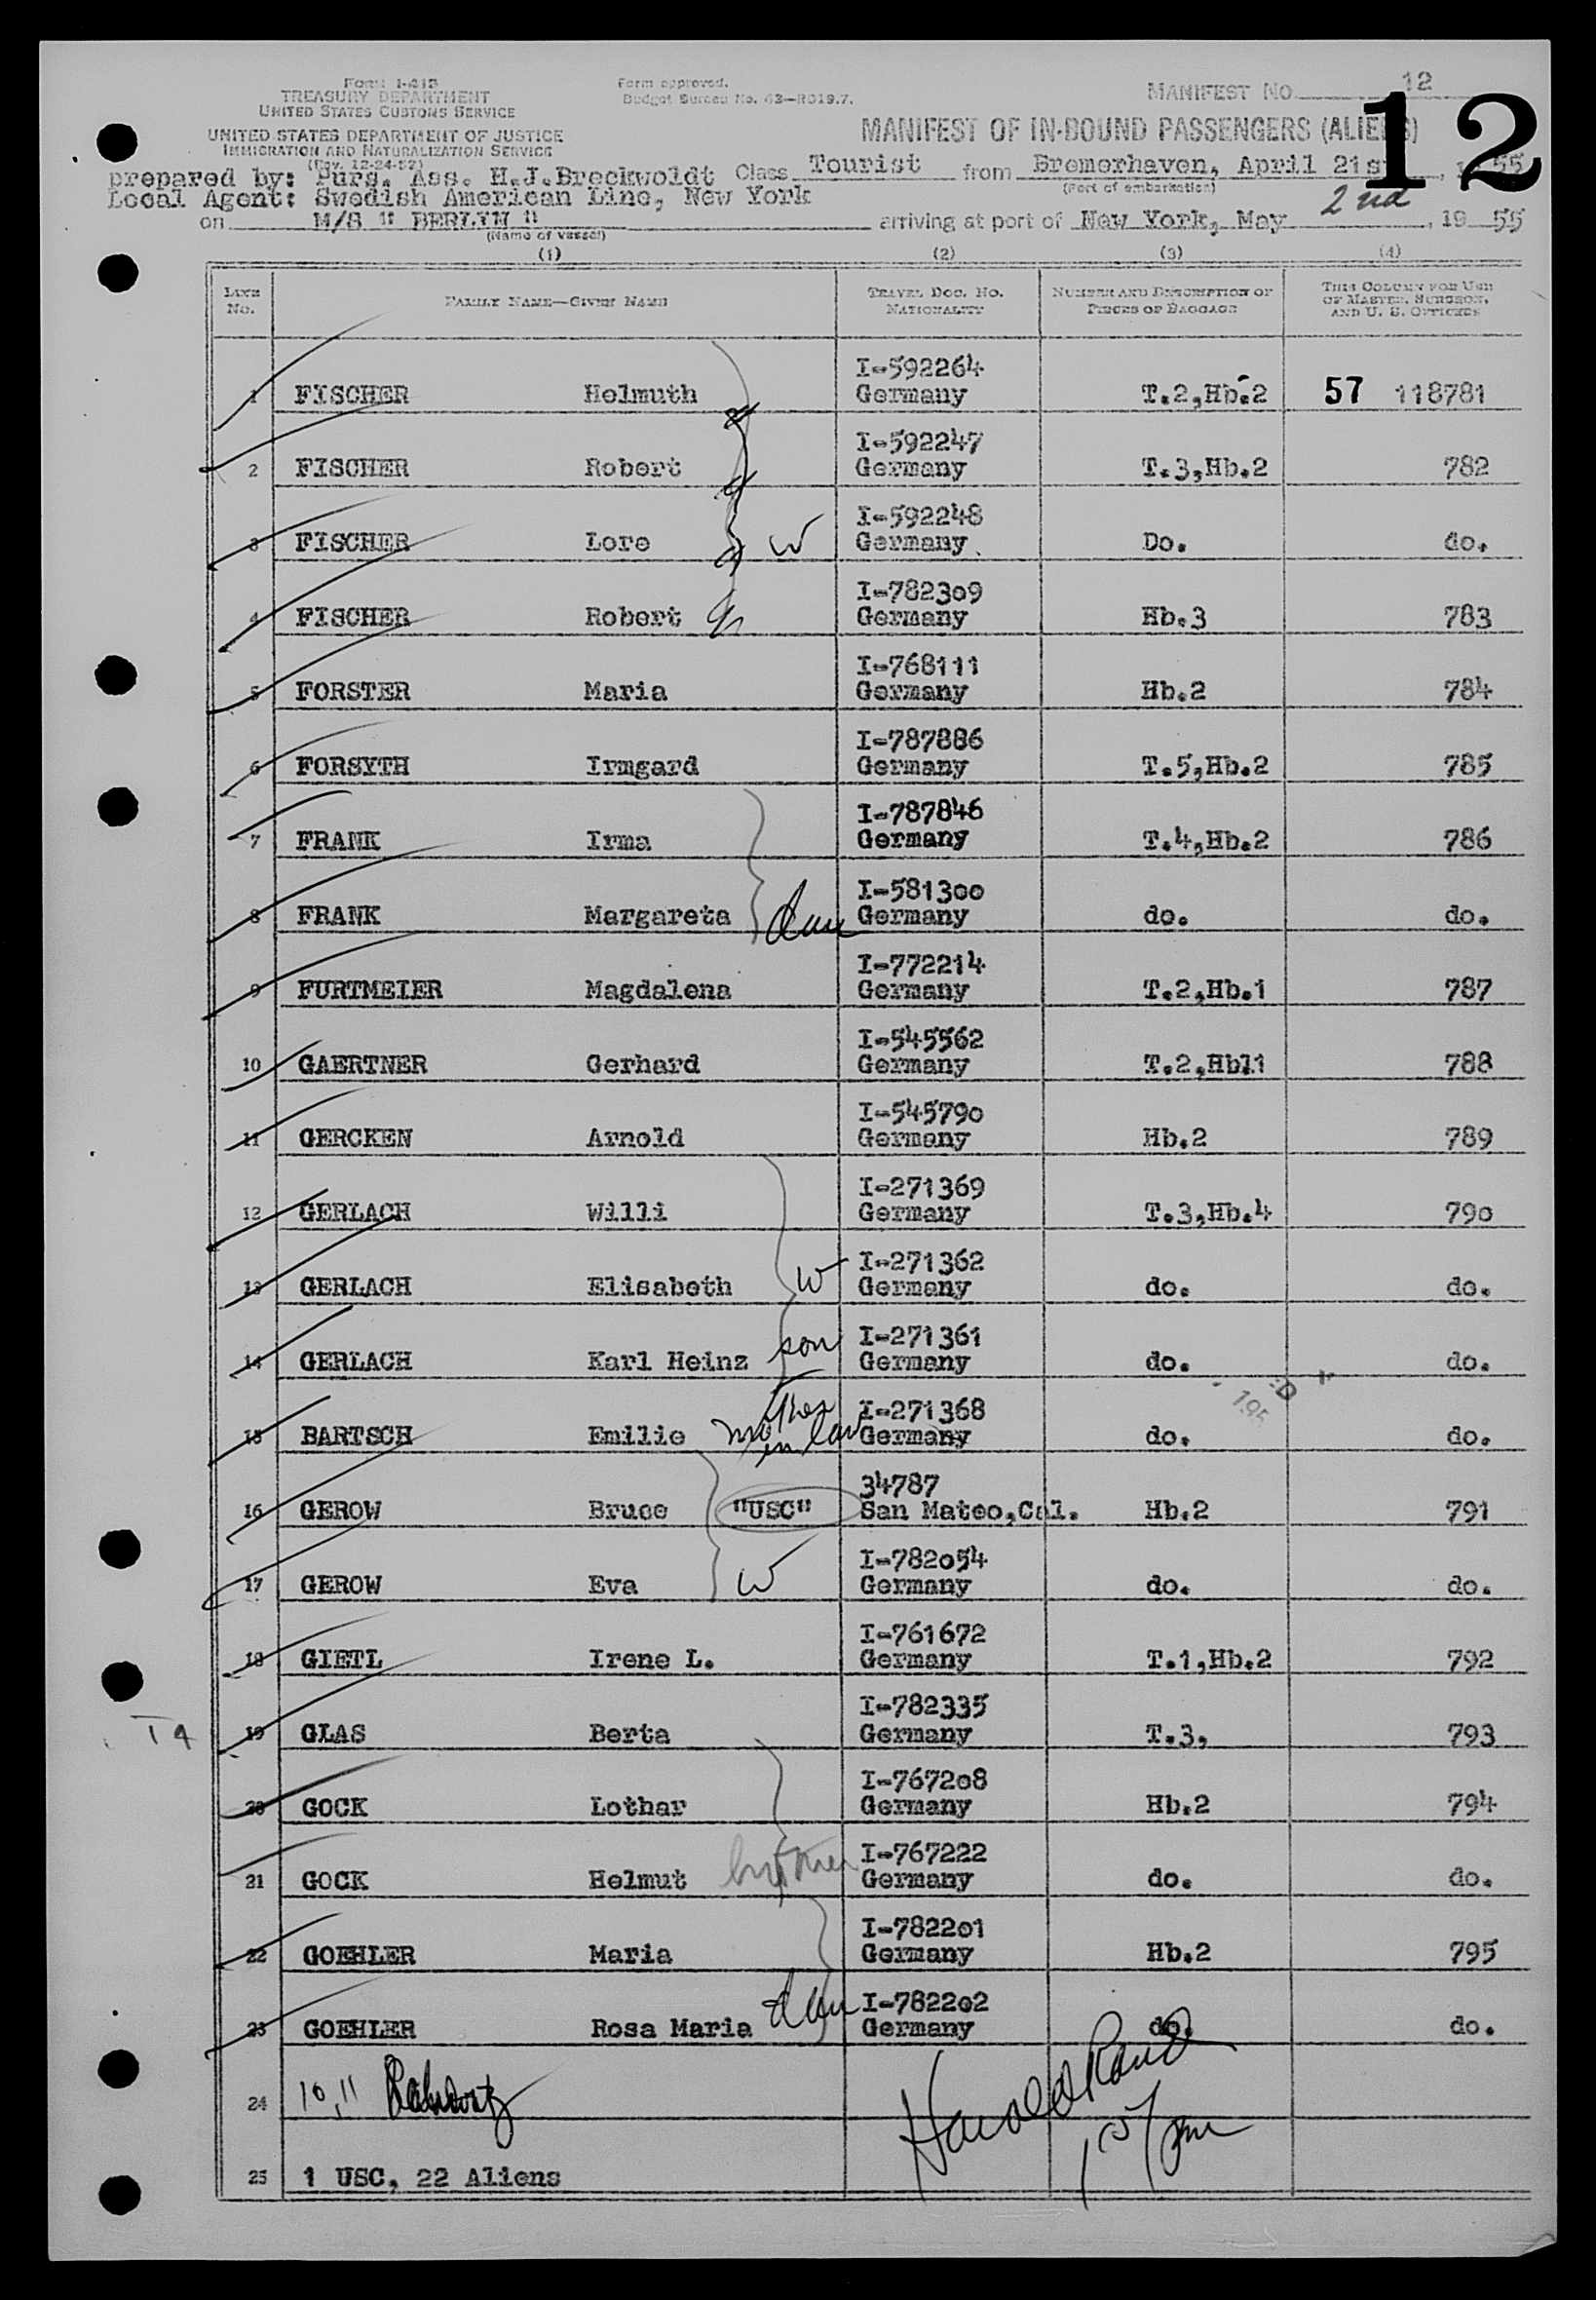 12
Form I-418
TREASURY DEPARTMENT
UNITED STATES CUSTOMS SERVICE
UNITED STATES DEPARTMENT OF JUSTICE
IMMIGRATION AND NATURALIZATION SERVICE
(Rev. 12-24-52)
Form approved.
Budget Bureau No. 43—R019.7.
MANIFEST NO. 12
MANIFEST OF IN-BOUND PASSENGERS (ALIENS)
prepared by: Purs. Ass. H.J.Breckwoldt Class Tourist from Bremerhaven, April 21st, 1955
(Port of embarkation)
Local Agent: Swedish American Line, New York
on M/S " BERLIN " arriving at port of New York, May 2nd, 19 55
(Name of vessel)
(1) (2) (3) (4)
LINE No. FAMILY NAME—GIVEN NAME TRAVEL DOC. NO. NATIONALITY NUMBER AND DESCRIPTION OF PIECES OF BAGGAGE THIS COLUMN FOR USE OF MASTER, SURGEON, AND U. S. OFFICERS
I-592264
1 FISCHER Helmuth Germany T.2,Hb.2 57 118781
I-592247
2 FISCHER Robert Germany T.3,Hb.2 782
I-592248
3 FISCHER Lore W Germany Do. do.
I-782309
4 FISCHER Robert Germany Hb.3 783
I-768111
5 FORSTER Maria Germany Hb.2 784
I-787886
6 FORSYTH Irmgard Germany T.5,Hb.2 785
I-787846
7 FRANK Irma Germany T.4,Hb.2 786
I-581300
8 FRANK Margareta dau Germany do. do.
I-772214
9 FURTMEIER Magdalena Germany T.2,Hb.1 787
I-545562
10 GAERTNER Gerhard Germany T.2,Hbl1 788
I-545790
11 GERCKEN Arnold Germany Hb.2 789
I-271369
12 GERLACH Willi Germany T.3,Hb.4 790
I-271362
13 GERLACH Elisabeth W Germany do. do.
I-271361
14 GERLACH Karl Heinz son Germany do. do.
I-271368
15 BARTSCH Emilie mother in law Germany do. do.
34787
16 GEROW Bruce "USC" San Mateo,Cal. Hb.2 791
I-782054
17 GEROW Eva W Germany do. do.
I-761672
18 GIETL Irene L. Germany T.1,Hb.2 792
I-782335
19 GLAS Berta Germany T.3, 793
I-767208
20 GOCK Lothar Germany Hb.2 794
I-767222
21 GOCK Helmut brother Germany do. do.
I-782201
22 GOEHLER Maria Germany Hb.2 795
I-782202
23 GOEHLER Rosa Maria dau Germany do. do.
24 10,11 Harold Rand
25 1 USC, 22 Aliens